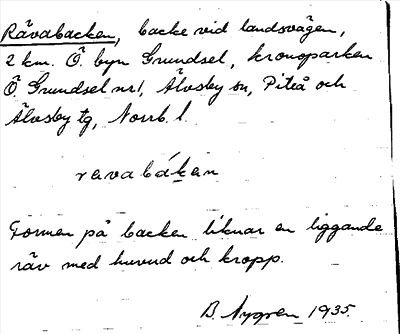 Rävabacken, backe vid landsvägen,
2 km. Ö. byn Grundsel, kronoparken
Ö. Grundsel nr 1, Älvsby sn, Piteå och
Älvsby tg, Norrb. l.
ravabákan
Formen på backen liknar en liggande
räv med huvud och kropp.
B. Nygren 1935.